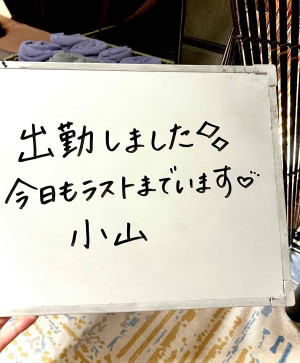 出勤しました◇◇
今日もラストまでいます♡
小山